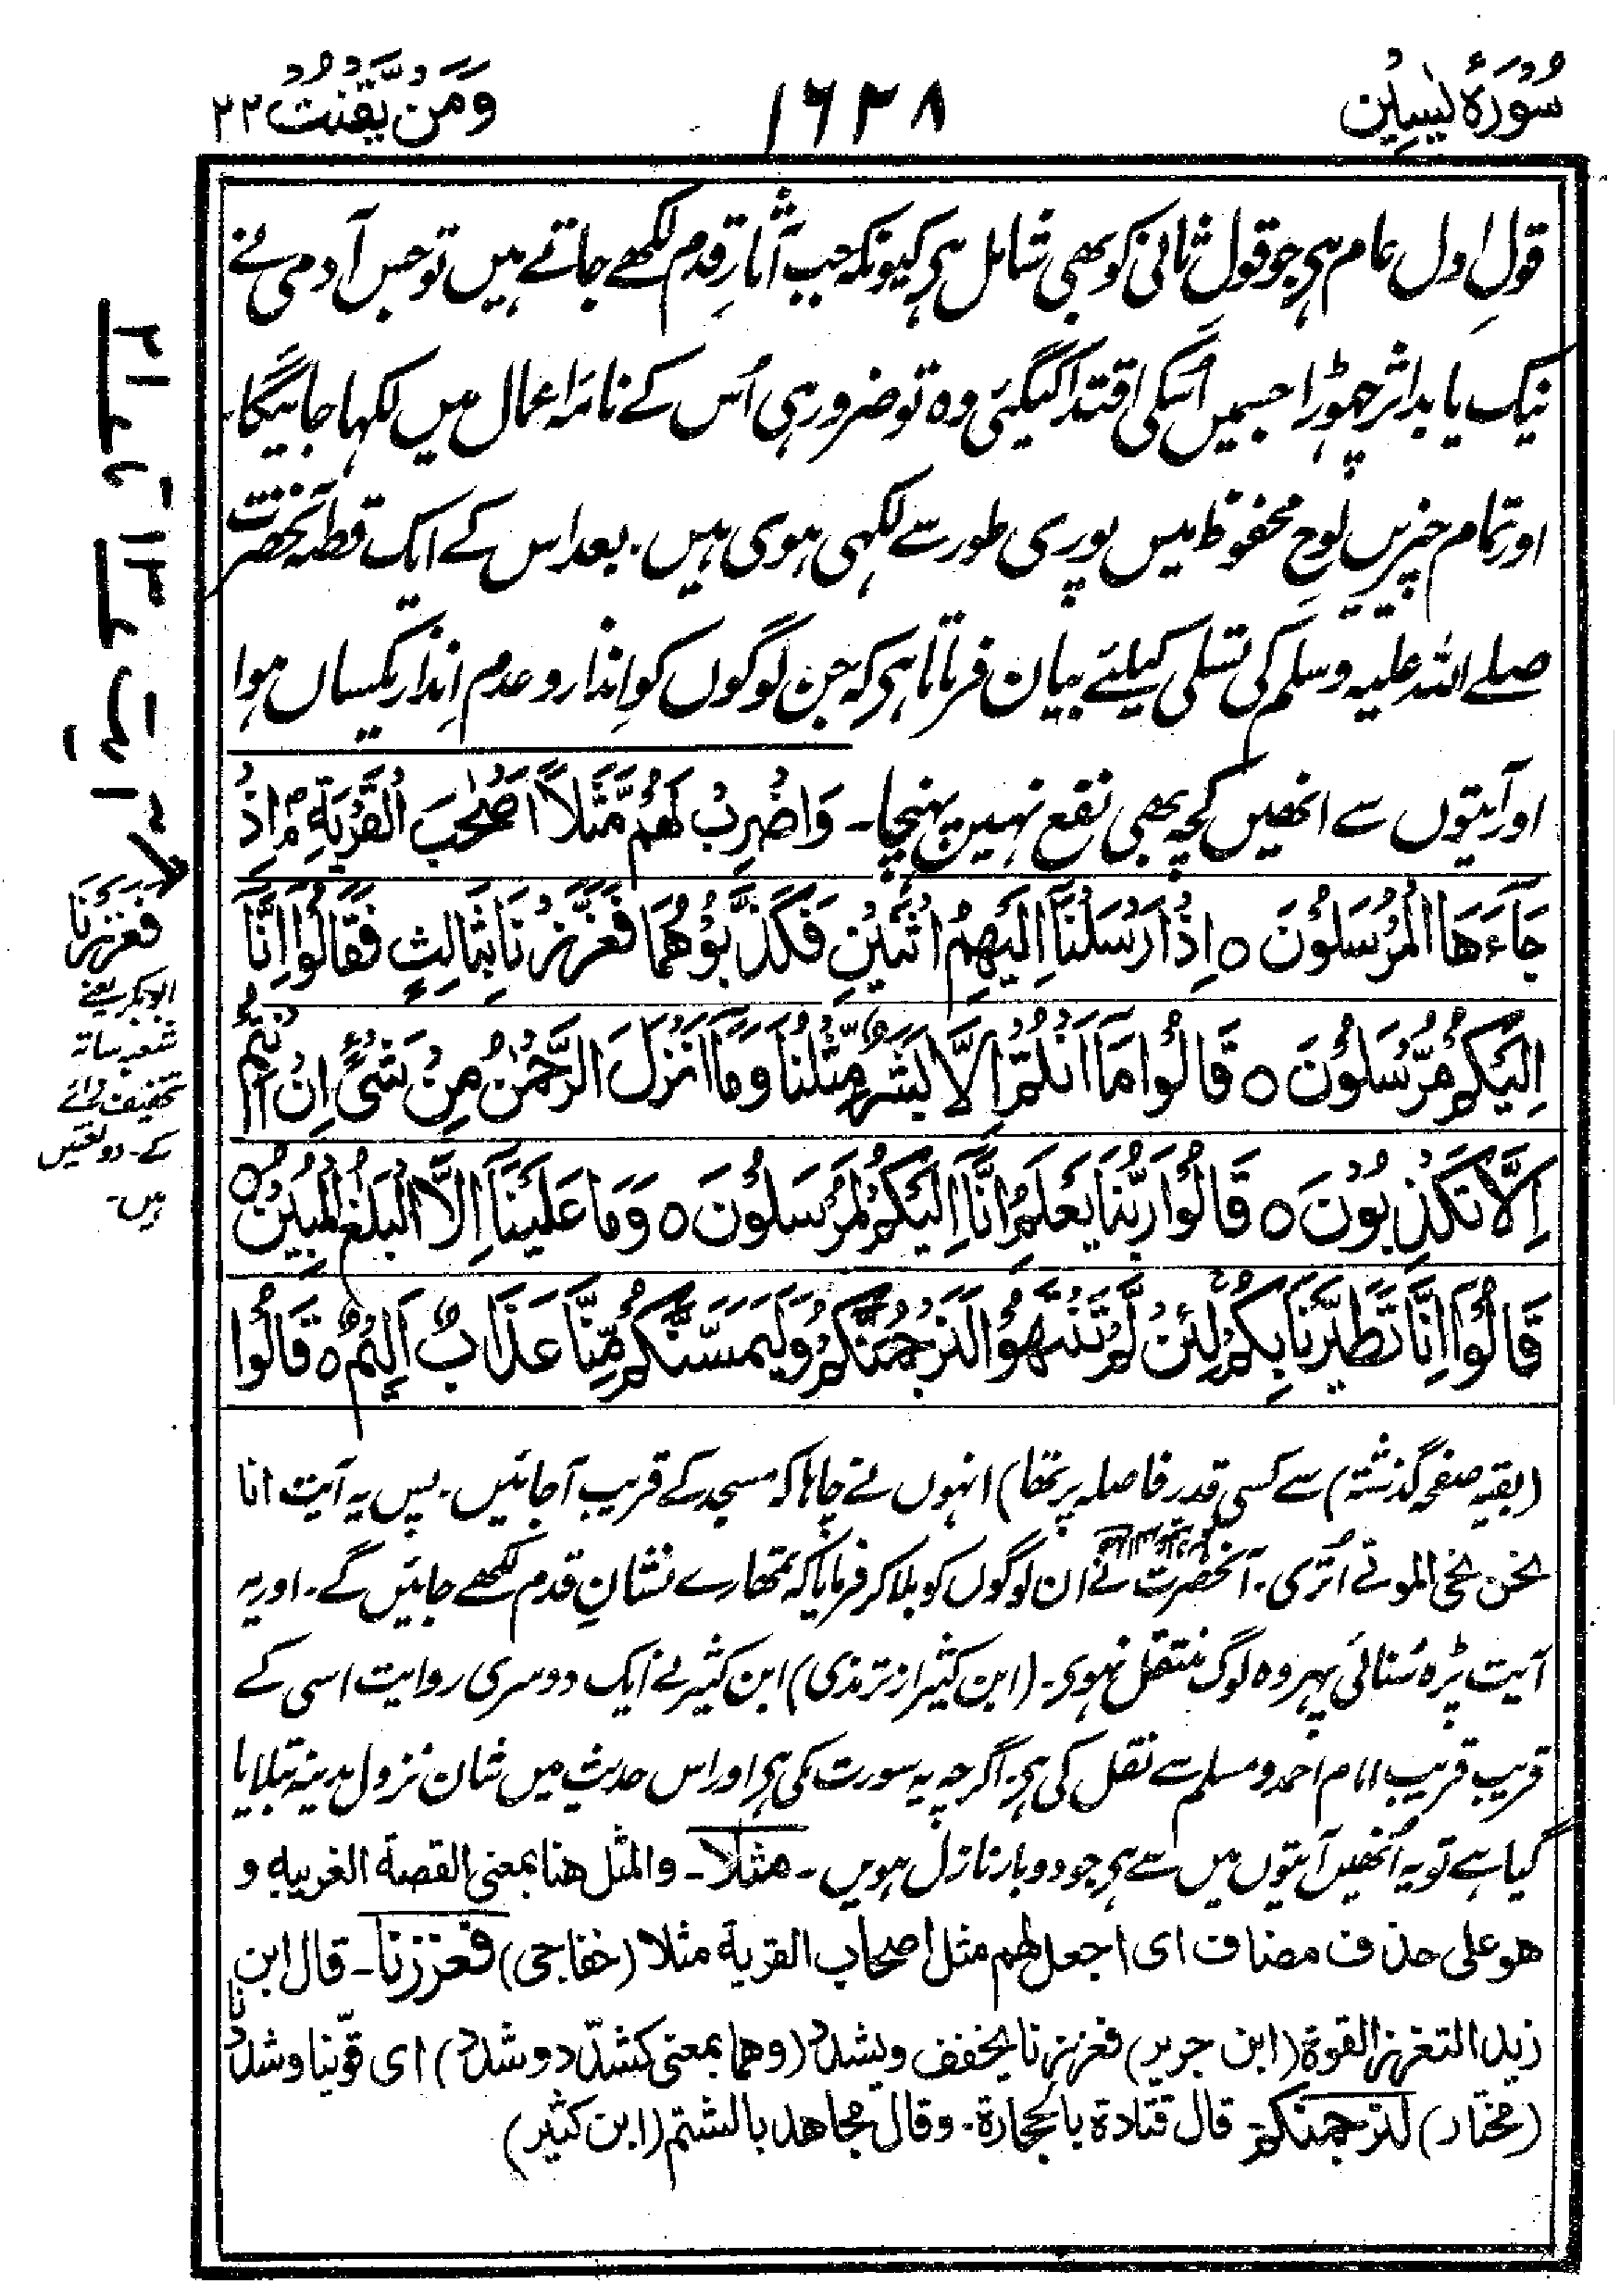 سُوْرَۂ يٰسِيْن
١٦٣٨
وَمَنْ يَّقْنُتْ ٢٢
قولِ اول عام ہی جو قولِ ثانی کو بھی شامل ہی کیونکہ جب آثارِ قدم لکھے جاتے ہیں تو جس آدمی نے
نیک یا بد اثر چھوڑا جسمیں اُسکی اقتدا کیگئی وہ تو ضرور ہی اُس کے نامۂ اعمال میں لکہا جائیگا۔
اور تمام چیزیں لوحِ محفوظ میں پوری طور سے لکہی ہوی ہیں۔ بعد اس کے ایک قصّہ آنحضرت
صلے اللہ علیہ وسلم کی تسلی کیلئے بیان فرماتا ہی کہ جن لوگوں کو اِنذار و عدم اِنذار یکساں ہوا
اور آیتوں سے انھیں کچھ بھی نفع نہیں پہنچا۔ وَاضْرِبْ لَهُمْ مَّثَلًا اَصْحٰبَ الْقَرْيَةِ م اِذْ
جَآءَهَا الْمُرْسَلُوْنَ ○ اِذْ اَرْسَلْنَآ اِلَيْهِمُ اثْنَيْنِ فَكَذَّبُوْهُمَا فَعَزَّزْنَا بِثَالِثٍ فَقَالُوْٓا اِنَّآ
اِلَيْكُمْ مُّرْسَلُوْنَ ○ قَالُوْا مَآ اَنْتُمْ اِلَّا بَشَرٌ مِّثْلُنَا وَمَآ اَنْزَلَ الرَّحْمٰنُ مِنْ شَيْءٍ اِنْ اَنْتُمْ
اِلَّا تَكْذِبُوْنَ ○ قَالُوْا رَبُّنَا يَعْلَمُ اِنَّآ اِلَيْكُمْ لَمُرْسَلُوْنَ ○ وَمَا عَلَيْنَآ اِلَّا الْبَلٰغُ الْمُبِيْنُ ○
قَالُوْٓا اِنَّا تَطَيَّرْنَا بِكُمْ لَئِنْ لَّمْ تَنْتَهُوْا لَنَرْجُمَنَّكُمْ وَلَيَمَسَّنَّكُمْ مِّنَّا عَذَابٌ اَلِيْمٌ ○ قَالُوْا
آیت ١٣ تا ٢١
فَعَزَزْنَا
ابوبکر یعنے
شعبہ ساتہ
تخفیف زائے
کے۔ دو لغتیں
ہیں۔
(بقیہ صفحہ گذشتہ) سے کسی قدر فاصلہ پر تھا) انہوں نے چاہا کہ مسجد کے قریب آجائیں۔ پس یہ آیت انا
نحن نحی الموتے اُتری۔ آنحضرت نے ان لوگوں کو بلا کر فرمایا کہ تمھارے نشانِ قدم لکھے جائیں گے۔ اور یہ
آیت پڑہ سُنائی پہر وہ لوگ منتقل نہوی۔ (ابن کثیر از ترمذی) ابن کثیر نے ایک دوسری روایت اسی کے
قریب قریب امام احمد و مسلم سے نقل کی ہی۔ اگرچہ یہ سورت مکی ہی اور اس حدیث میں شان نزول مدینہ بتلایا
گیا ہے تو یہ اُنھیں آیتوں میں سے ہی جو دوبار نازل ہویں۔ مثلا۔ والمثل هنا بمعنى القصة الغريبه و
هو على حذف مضاف ای اجعل لهم مثل اصحاب القرية مثلا (خفاجی) فعززنا۔ قال ابن
زيد التعزيز القوة (ابن جرير) فعززنا يخفف ويشدد (وهما بمعنى كشدّد وشدد) ای قوّينا وشددنا
(مختار) لنرجمنكم قال قتادة بالحجارة۔ وقال مجاهد بالشتم (ابن كثير)